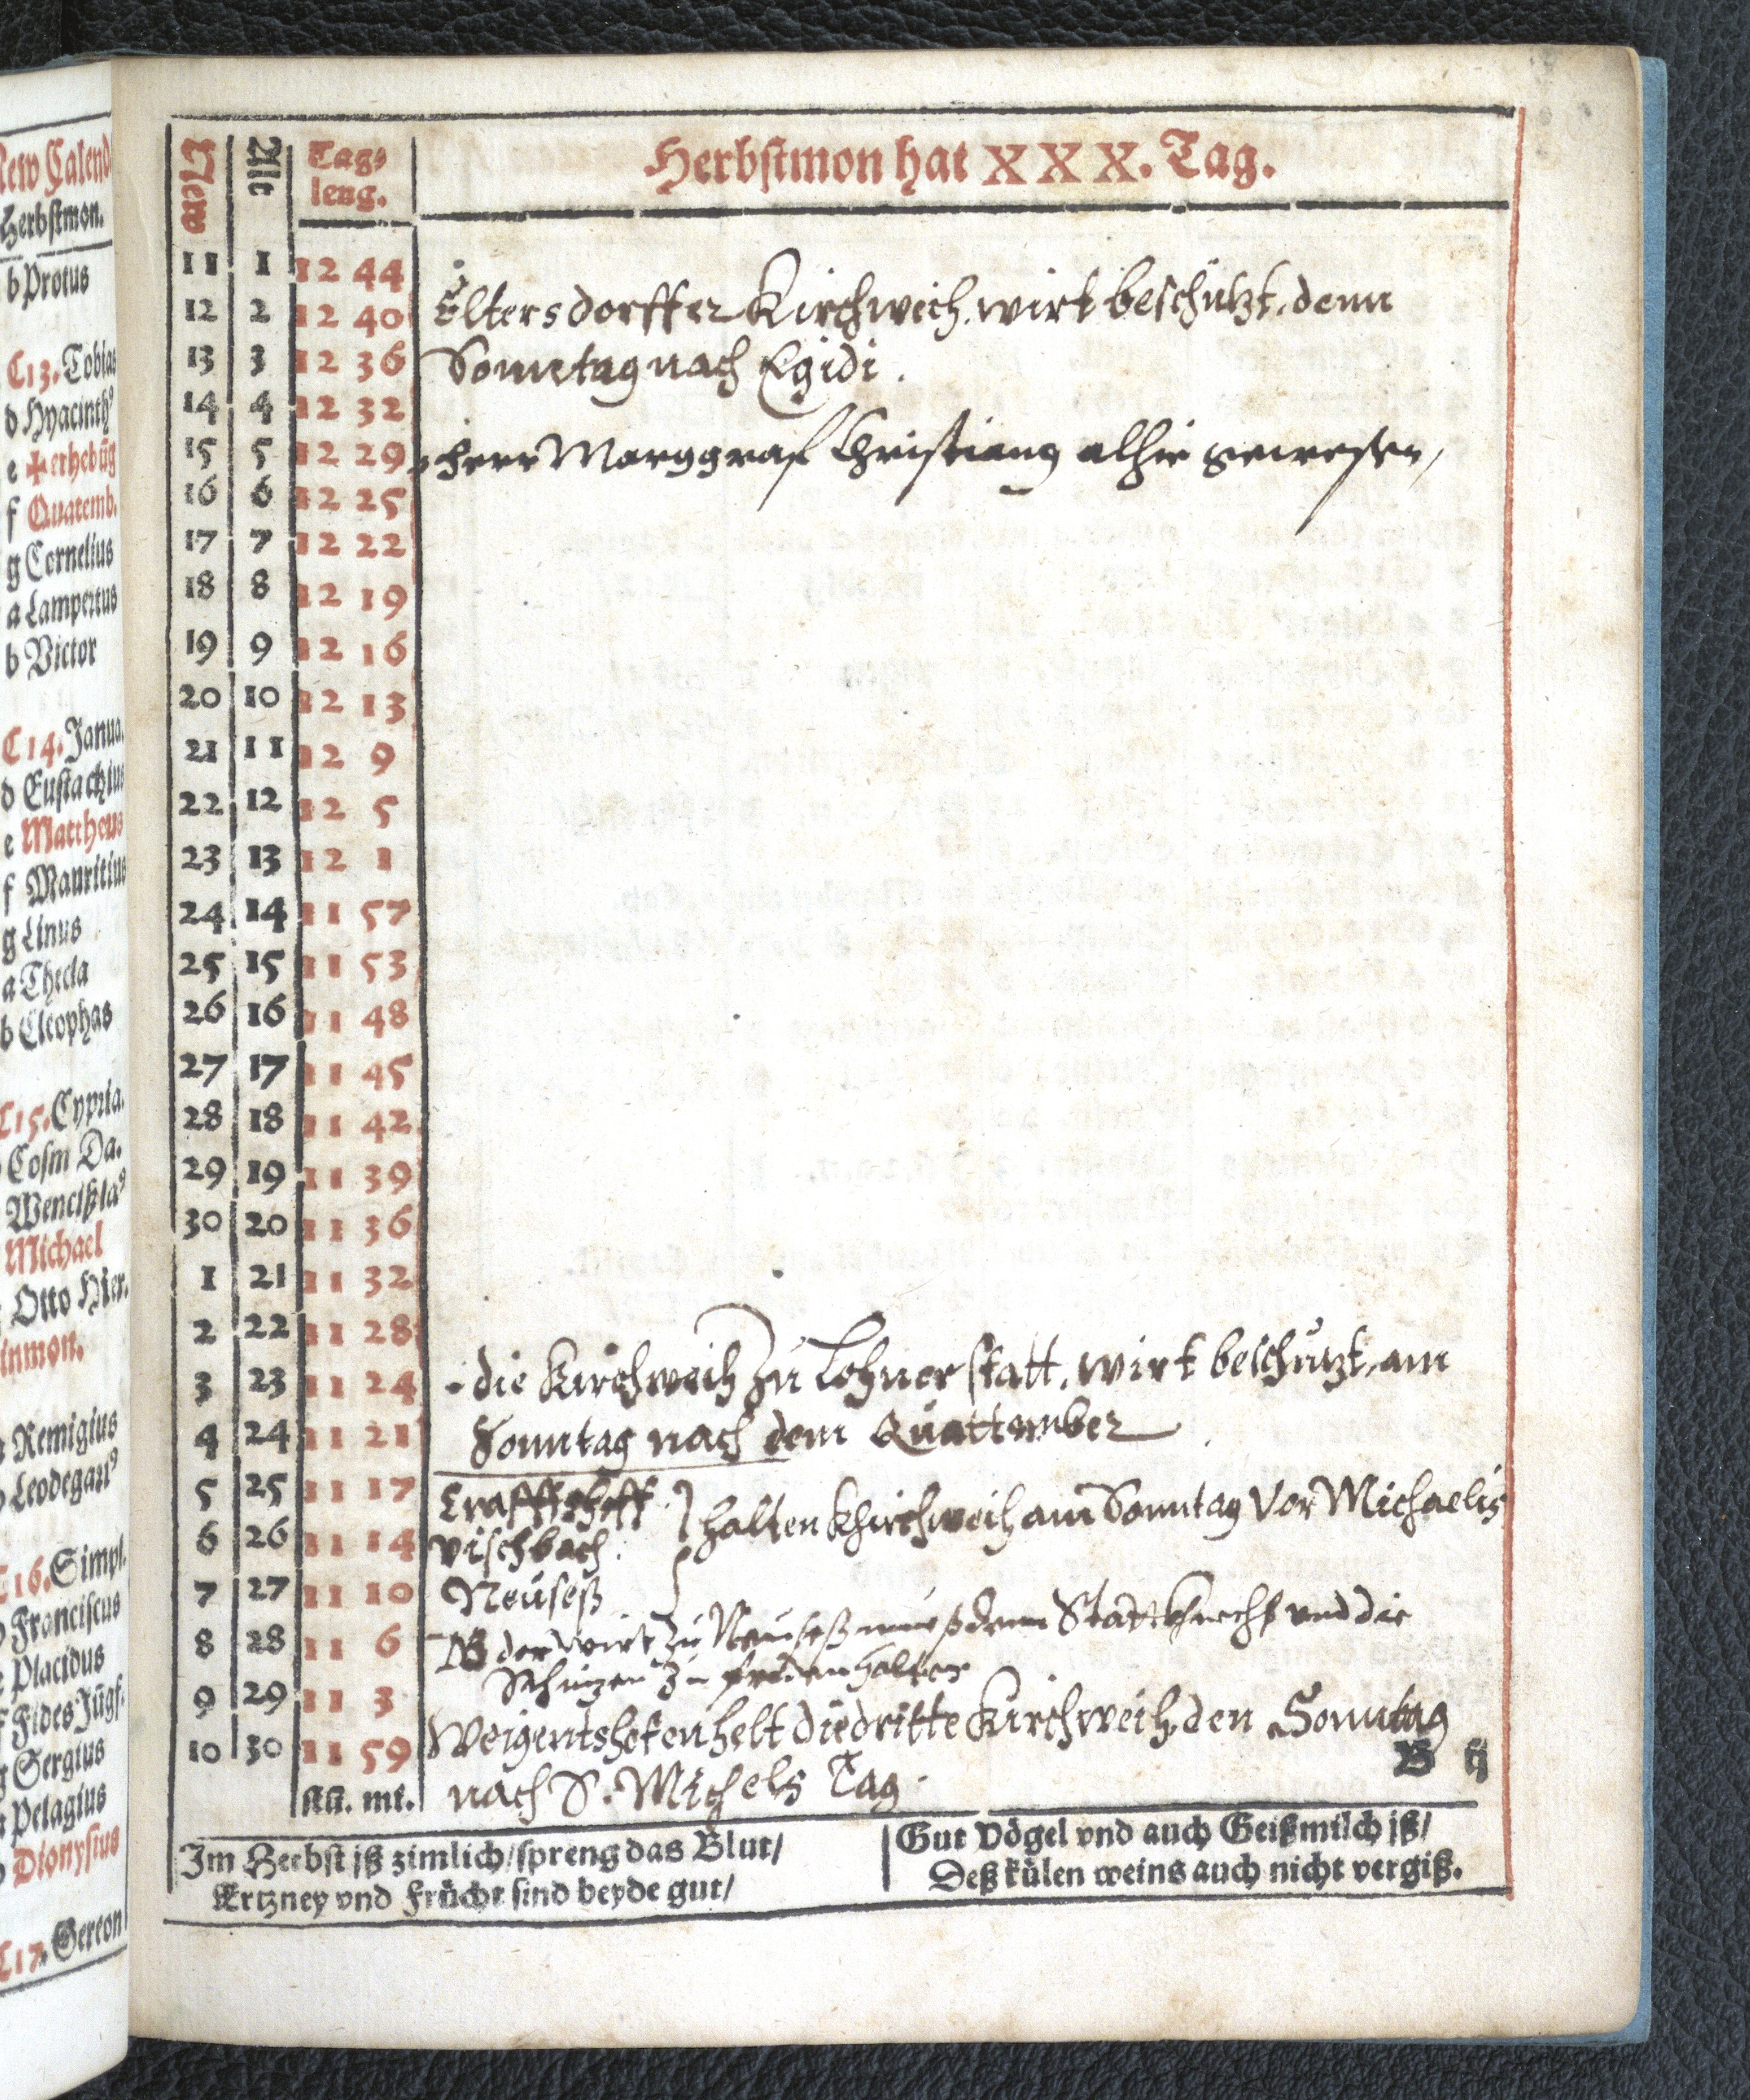 New Calend
Herbstmon.
b Protus
C 13. Tobias
d Hyacinth9
e ✠ erhebūg
f Quatemb.
g Cornelius
a Lampertus
b Victor
C 14. Janua.
d Eustachius
e Mattheus
f Mauritius
g Linus
a Thecla
b Cleophas
C 15. Cypria.
Cosm Da.
Wencißla9
Michael
Otto Hier.
inmon.
a Remigius
b Leodegari9
C 16. Simpl.
Franciscus
e Placidus
f Fides Jūgf.
g Sergius
a Pelagius
b Dionysius
C 17. Gereon
New Alt Tag⸗ Herbstmon hat X X X. Tag.
leng.
11 1 12 44
12 2 12 40 Eltersdorffer Kirchweich. wirt beschützt, denn
13 3 12 36 Sonntag nach Egidi.
14 4 12 32
15 5 12 29 herr Marggraf Christiang alhie gewesen,
16 6 12 25
17 7 12 22
18 8 12 19
19 9 12 16
20 10 12 13
21 11 12 9
22 12 12 5
23 13 12 1
24 14 11 57
25 15 11 53
26 16 11 48
27 17 11 45
28 18 11 42
29 19 11 39
30 20 11 36
1 21 11 32
2 22 11 28
3 23 11 24 die Kirchweih Zu Lohnerstatt. wirt beschützt, am
4 24 11 21 Sonntag nach dem Quattember
5 25 11 17 Craffthoff
6 26 11 14 vischbach. halten Khirchweih am Sonntag Vor Michaelis
7 27 11 10 Neuseß
8 28 11 6 NB der Wirt Zu Neuseß mueß dem Stattknecht und die
Schüzen Zu frieden halten
9 29 11 3 Weigentshofen helt die dritte Kirchweih, den Sonntag
10 30 11 59 nach S. Michels Tag.
B ij
stu. mi.
Im Herbst iß zimlich/ spreng das Blut/
Artzney vnd Frücht sind beyde gut/
Gut Vögel vnd auch Geißmilch iß/
Deß külen weins auch nicht vergiß.